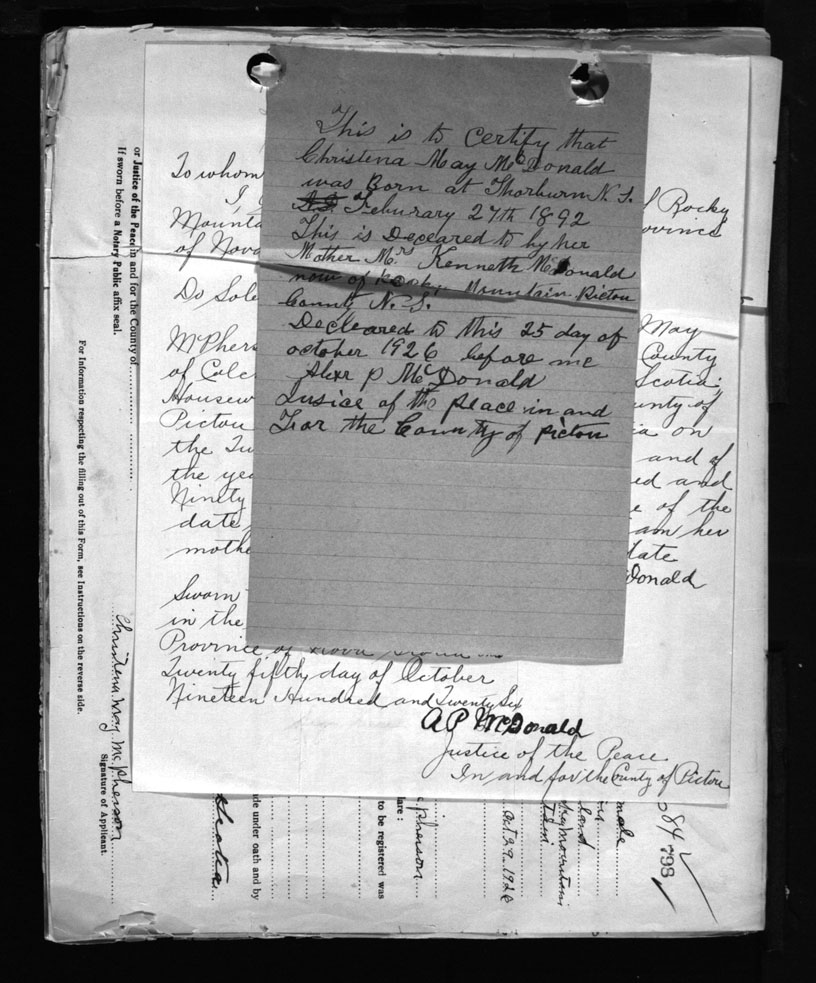 This is to certify that
Christena May McDonald
was Born at Thorburn N. S.
Feburary 27th 1892
This is Decleared to by her
Mother Mrs Kenneth McDonald
now of Rocky Mountain Pictou
County N. S.
Decleared to this 25 day of
october 1926 before me
Alexr P McDonald
Jusice of the peace in and
For the County of pictou
To whom
I,
Rocky
Mounta
rovince
of Nova
Do Sole
May
McPhers
County
of Colc
Scotia;
Housew
unty of
Pictou
ia on
the Tw
and of
the yea
ed and
Ninety
e of the
date,
am her
mothe
late
Donald
Sworn
in the
Province of Nova Scotia
Twenty fifth day of October
Nineteen Hundred and Twenty Six
A P McDonald
Justice of the Peace
In and for the County of Pictou
or Justice of the Peace in and for the County of
If sworn before a Notary Public affix seal.
For Information respecting the filling out of this Form, see Instructions on the reverse side.
Christena May McPherson
Signature of Applicant.
Scotia
de under oath and by
to be registered was
lare :
c pherson
oct 29 1926
male
84
798